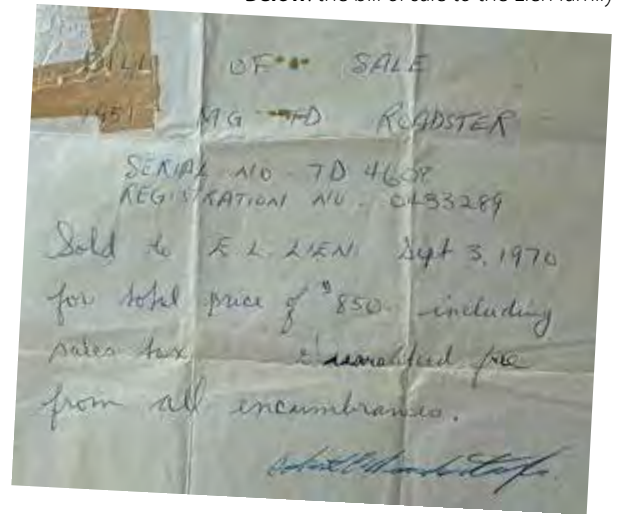 Below: the bill of sale to the Lien family
BILL OF SALE
1951 MG TD ROADSTER
SERIAL NO. TD 4608
REGISTRATION NO. 0433289
Sold to E. L. LIEN. Sept 3, 1970
for total price of $850. including
sales tax free
from all encumbrances.